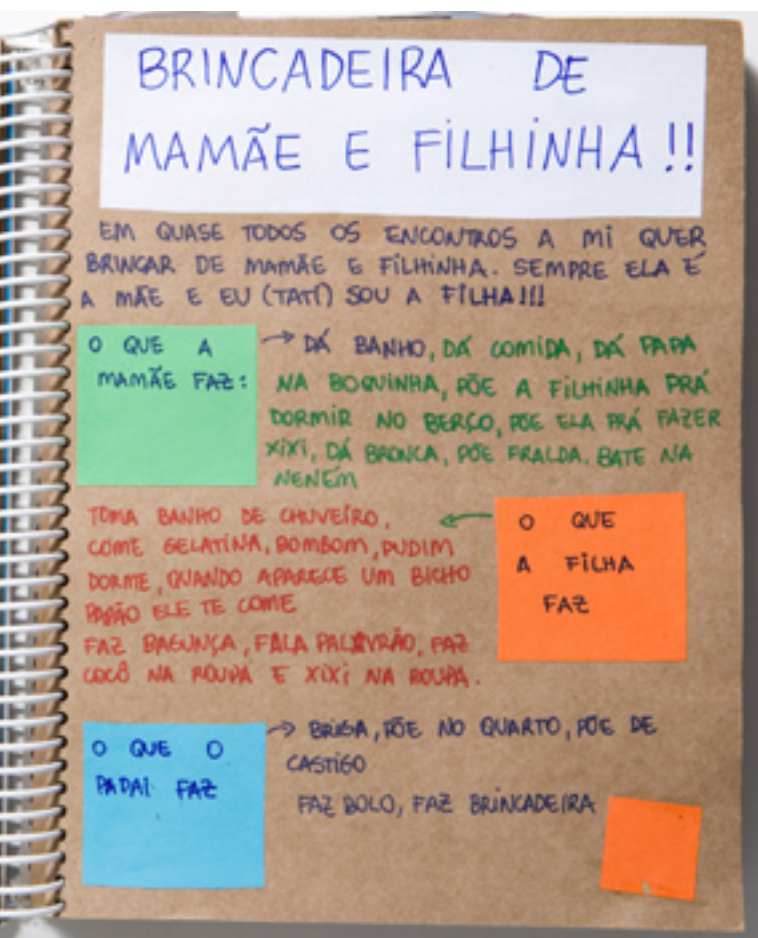 BRINCADEIRA DE
MAMÃE E FILHINHA!!
EM QUASE TODOS OS ENCONTROS A MI QUER
BRINCAR DE MAMÃE E FILHINHA. SEMPRE ELA É
A MÃE E EU (TATI) SOU A FILHA!!!
O QUE A
MAMÃE FAZ:
→ DÁ BANHO, DÁ COMIDA, DÁ PAPA
NA BOQUINHA, PÕE A FILHINHA PRÁ
DORMIR NO BERÇO, POE ELA PRÁ FAZER
XIXI, DÁ BRONCA, PÕE FRALDA. BATE NA
NENEM
TOMA BANHO DE CHUVEIRO,
COME GELATINA, BOMBOM, PUDIM
DORME, QUANDO APARECE UM BICHO
PAPÃO ELE TE COME
FAZ BAGUNÇA, FALA PALAVRÃO, FAZ
COCÔ NA ROUPA E XIXI NA ROUPA.
← O QUE
A FILHA
FAZ
O QUE O
PAPAI FAZ
→ BRIGA, PÕE NO QUARTO, PÕE DE
CASTIGO
FAZ BOLO, FAZ BRINCADEIRA